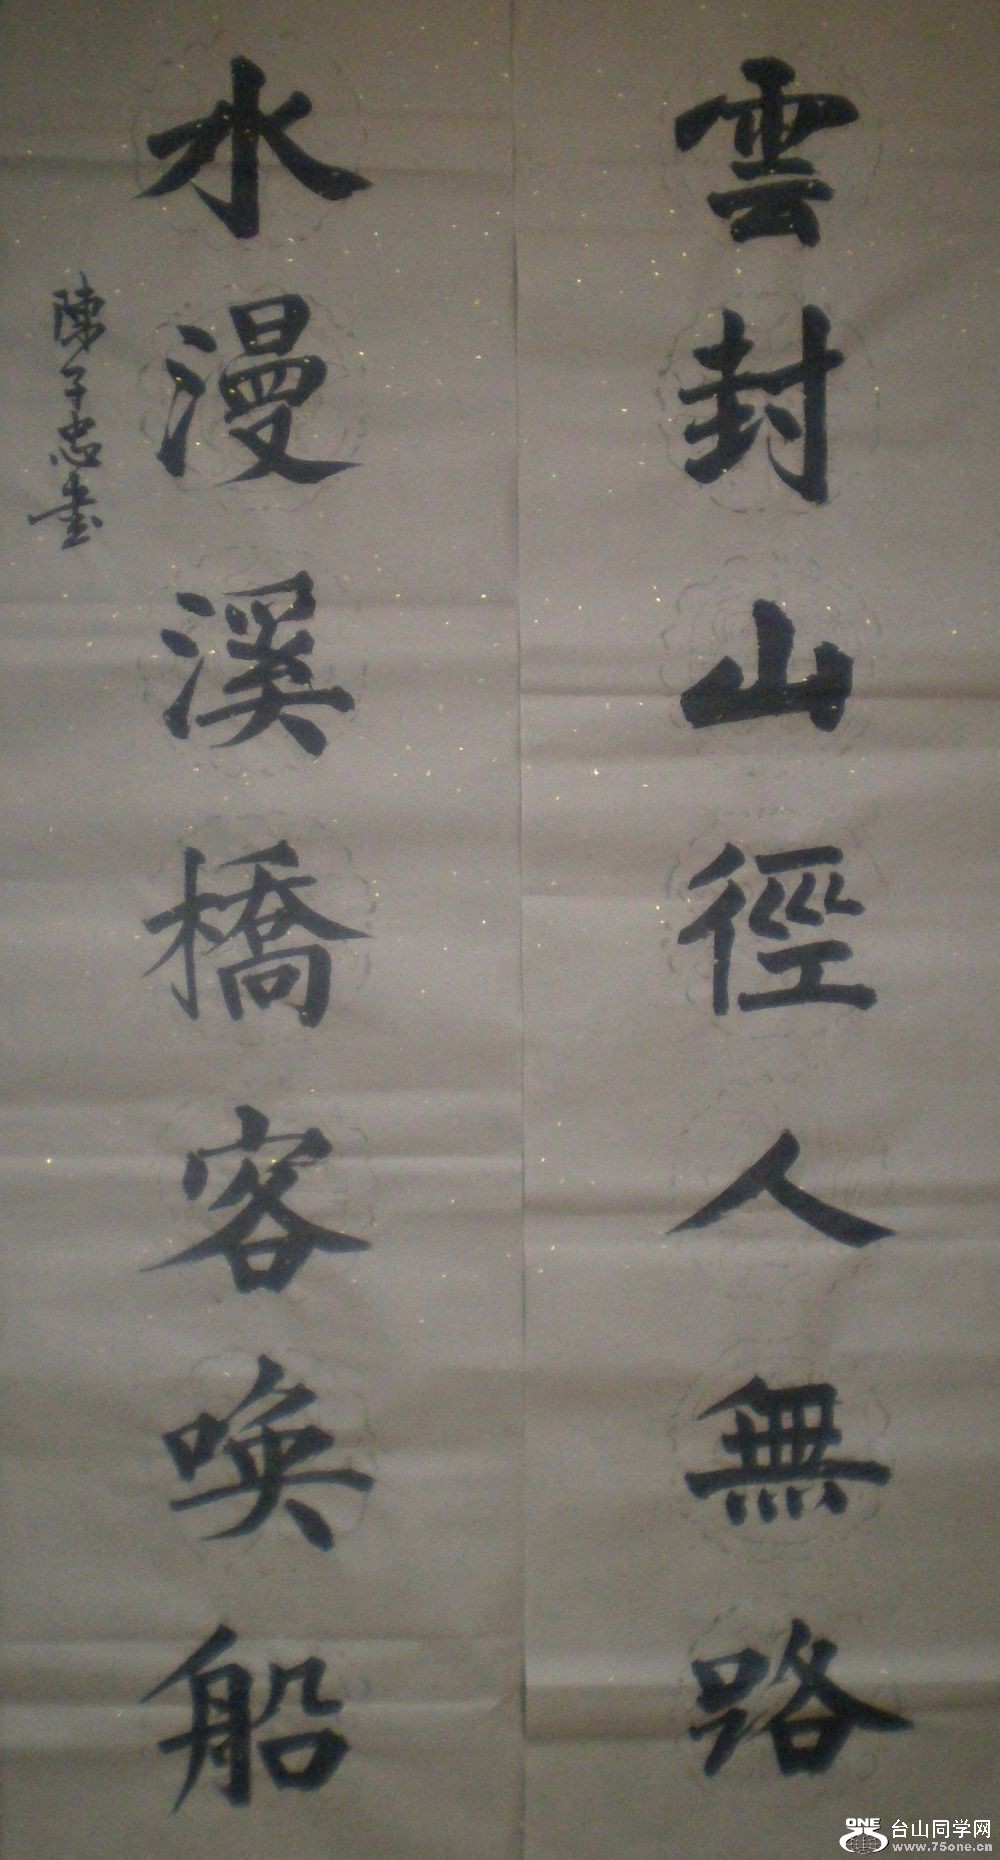 雲封山徑人無路
水漫溪橋客喚船
陳子忠書
ONE
台山同学网
www.75one.cn